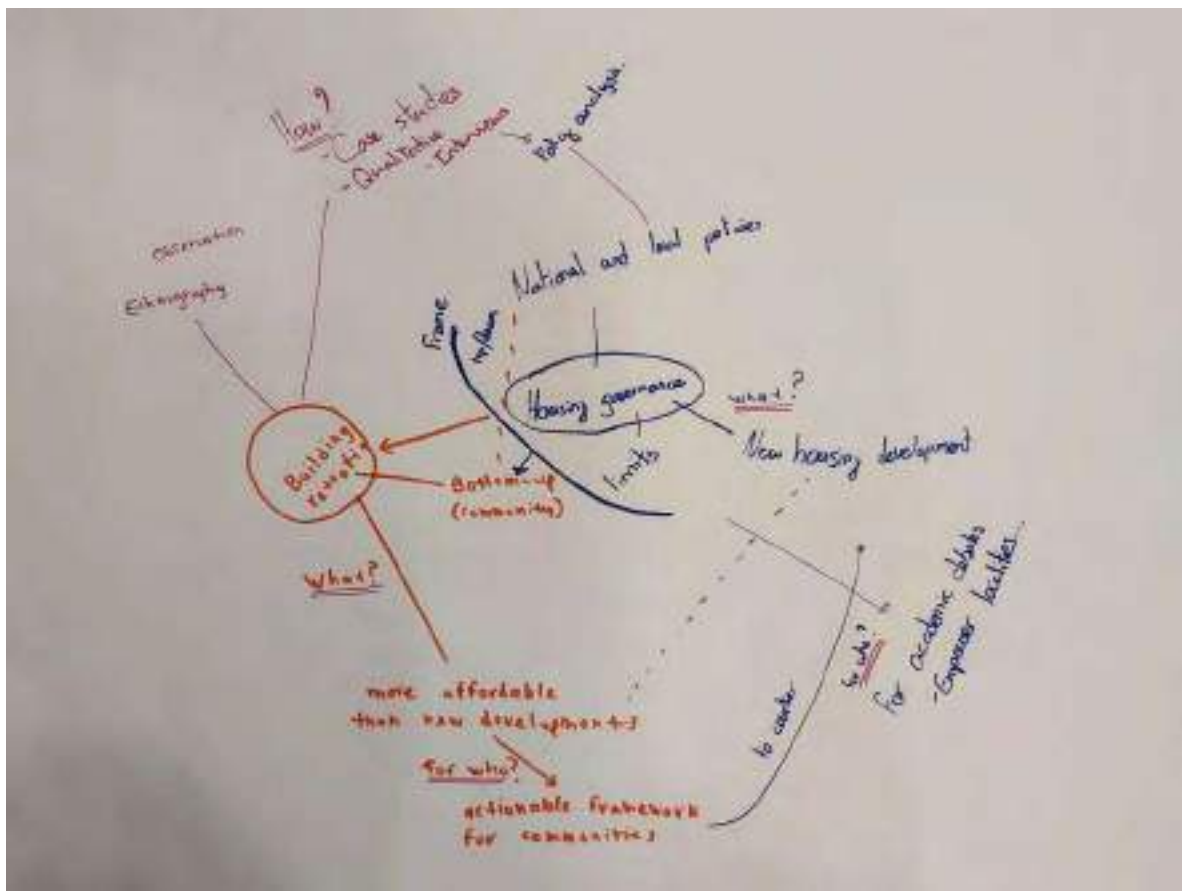 How?
- Case studies
- Qualitative
- Interviews
Policy analysis.
observation
Ethnography
National and local policies
Frame
Housing governance
what?
New housing development
limits
Building
Bottom-up
(community)
What?
more affordable
than new developments
for who?
actionable framework
for communities
to counter
to who?
For academic debates
- Empower localities...